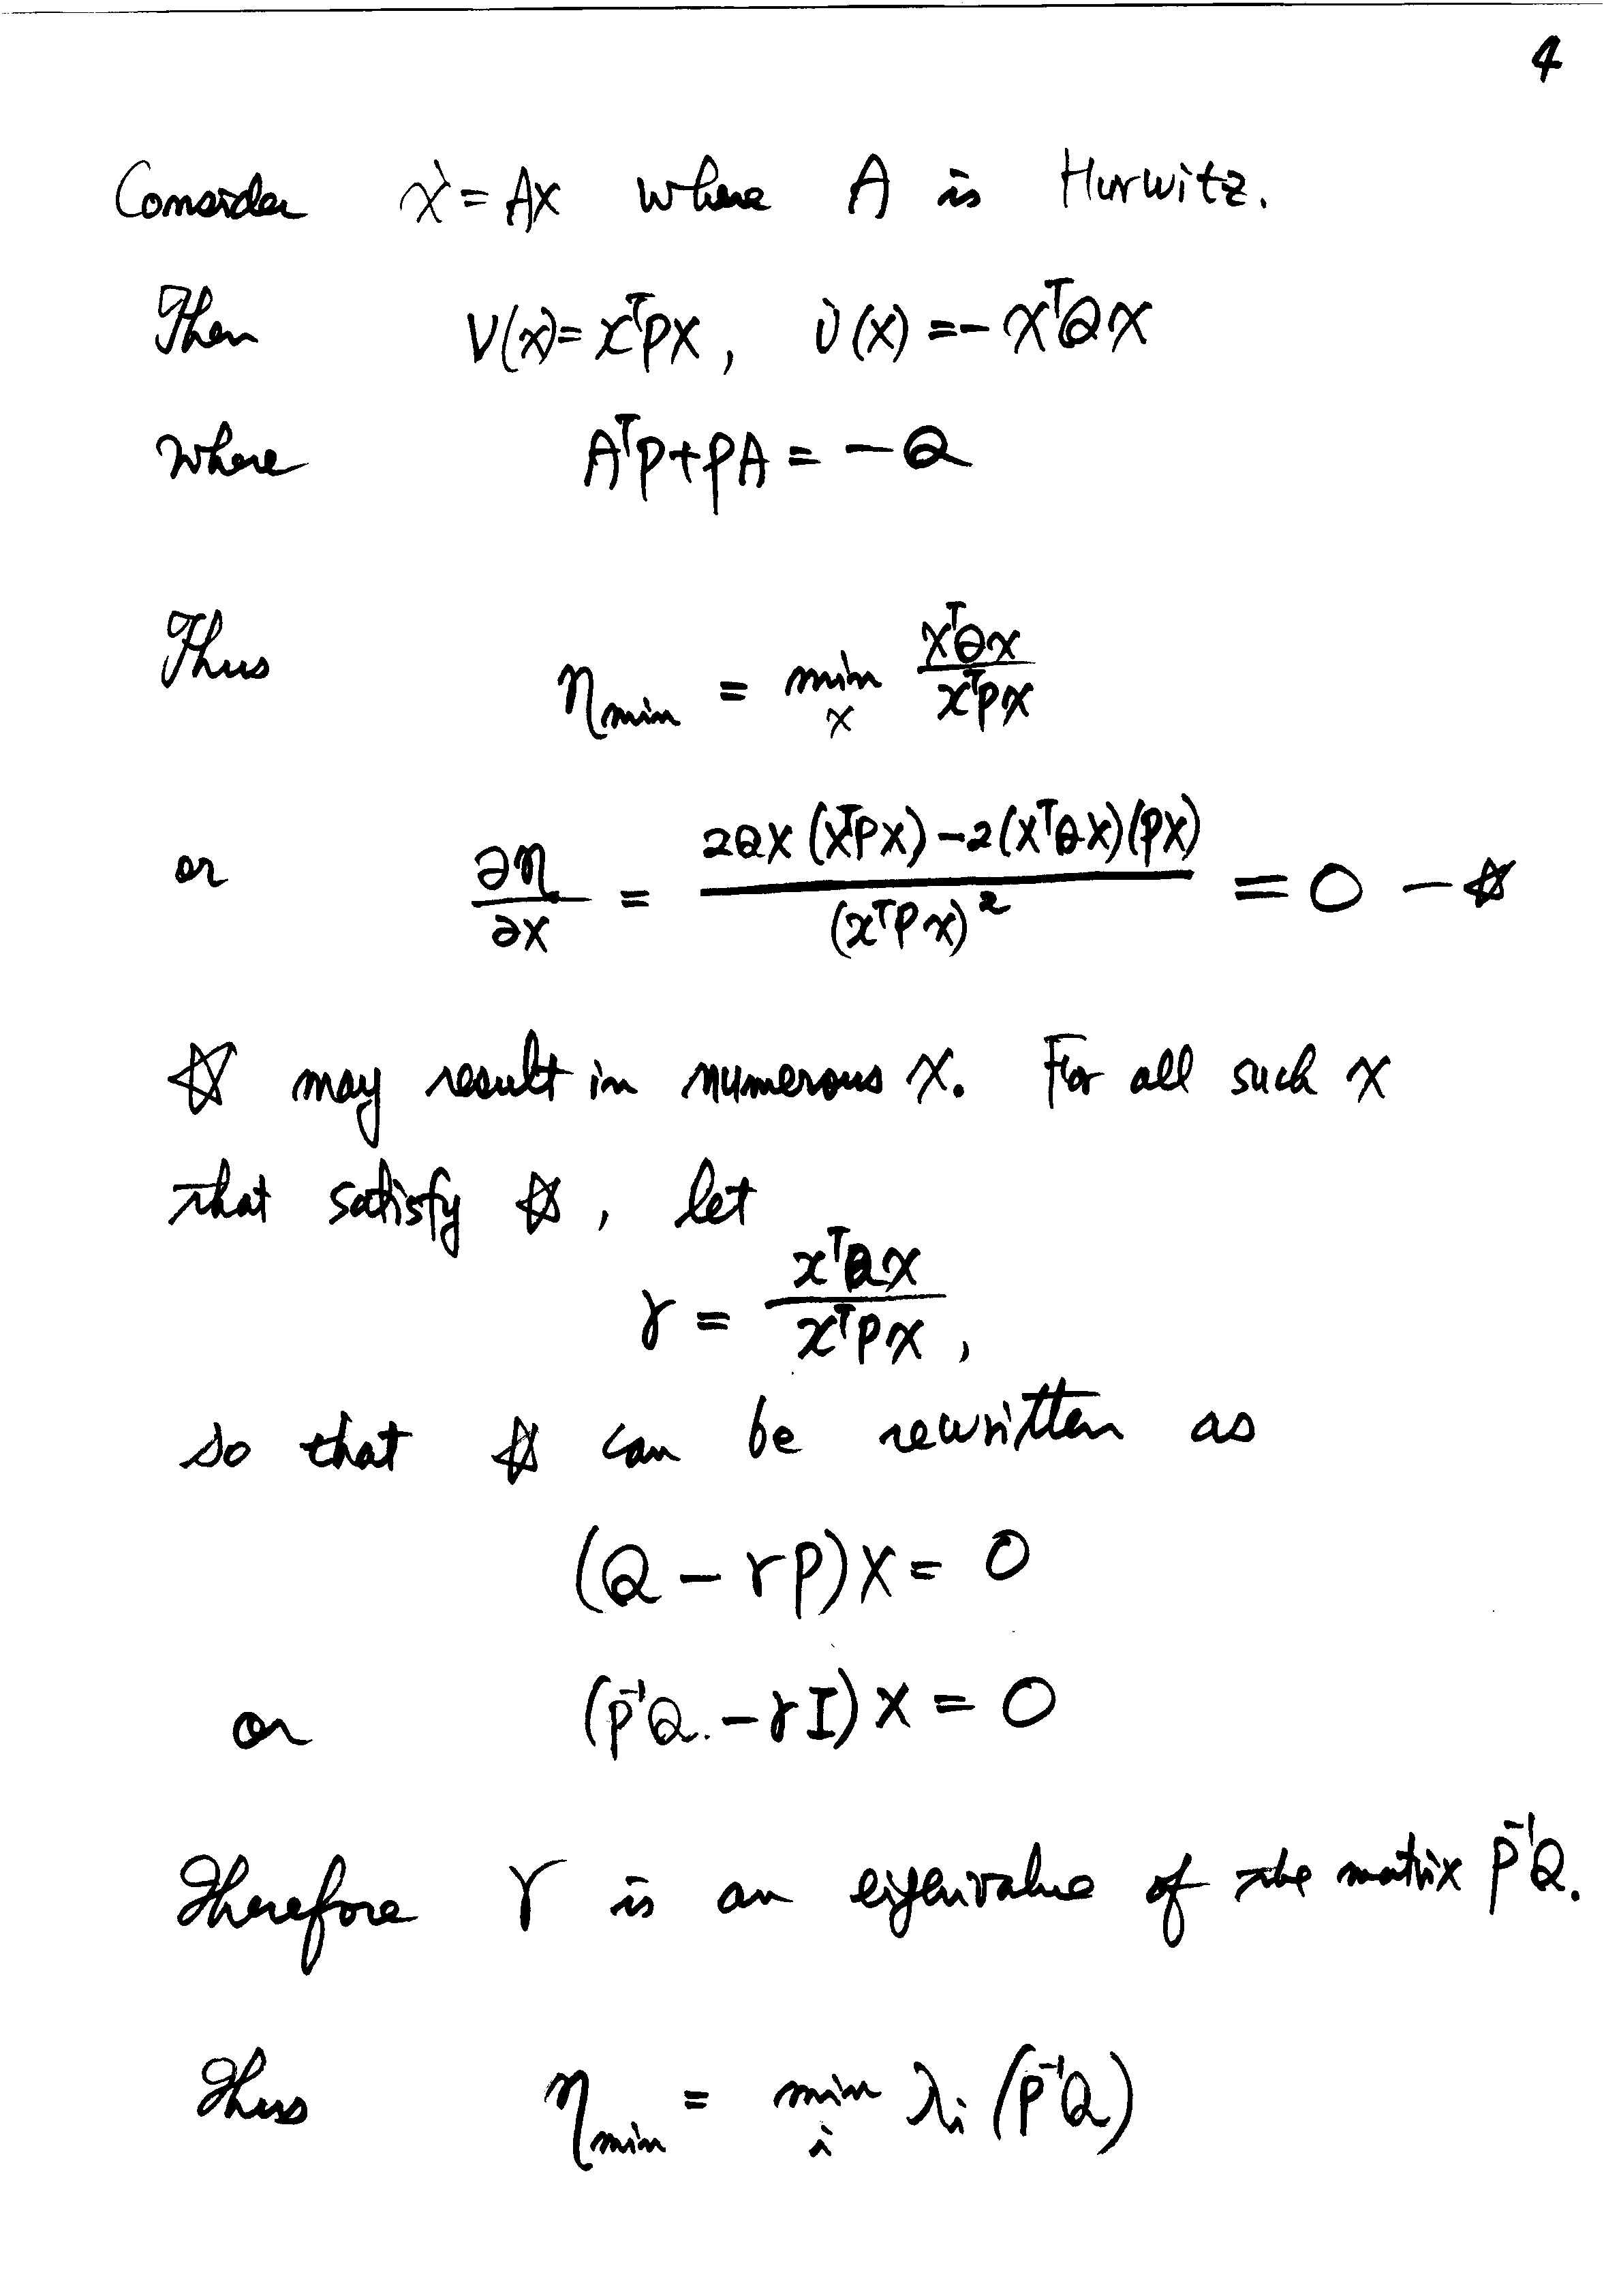 4
Consider ẋ = Ax where A is Hurwitz.
Then V(x) = xᵀPx, V̇(x) = -xᵀQx
where AᵀP + PA = -Q
Thus η_min = min_x xᵀQx / xᵀPx
or ∂η/∂x = 2Qx (xᵀPx) - 2(xᵀQx)(Px) / (xᵀPx)² = 0 - ☆
☆ may result in numerous x. For all such x
that satisfy ☆, let
γ = xᵀQx / xᵀPx,
so that ☆ can be rewritten as
(Q - γP)x = 0
or (P⁻¹Q - γI)x = 0
Therefore γ is an eigenvalue of the matrix P⁻¹Q.
Thus η_min = min_i λ_i (P⁻¹Q)